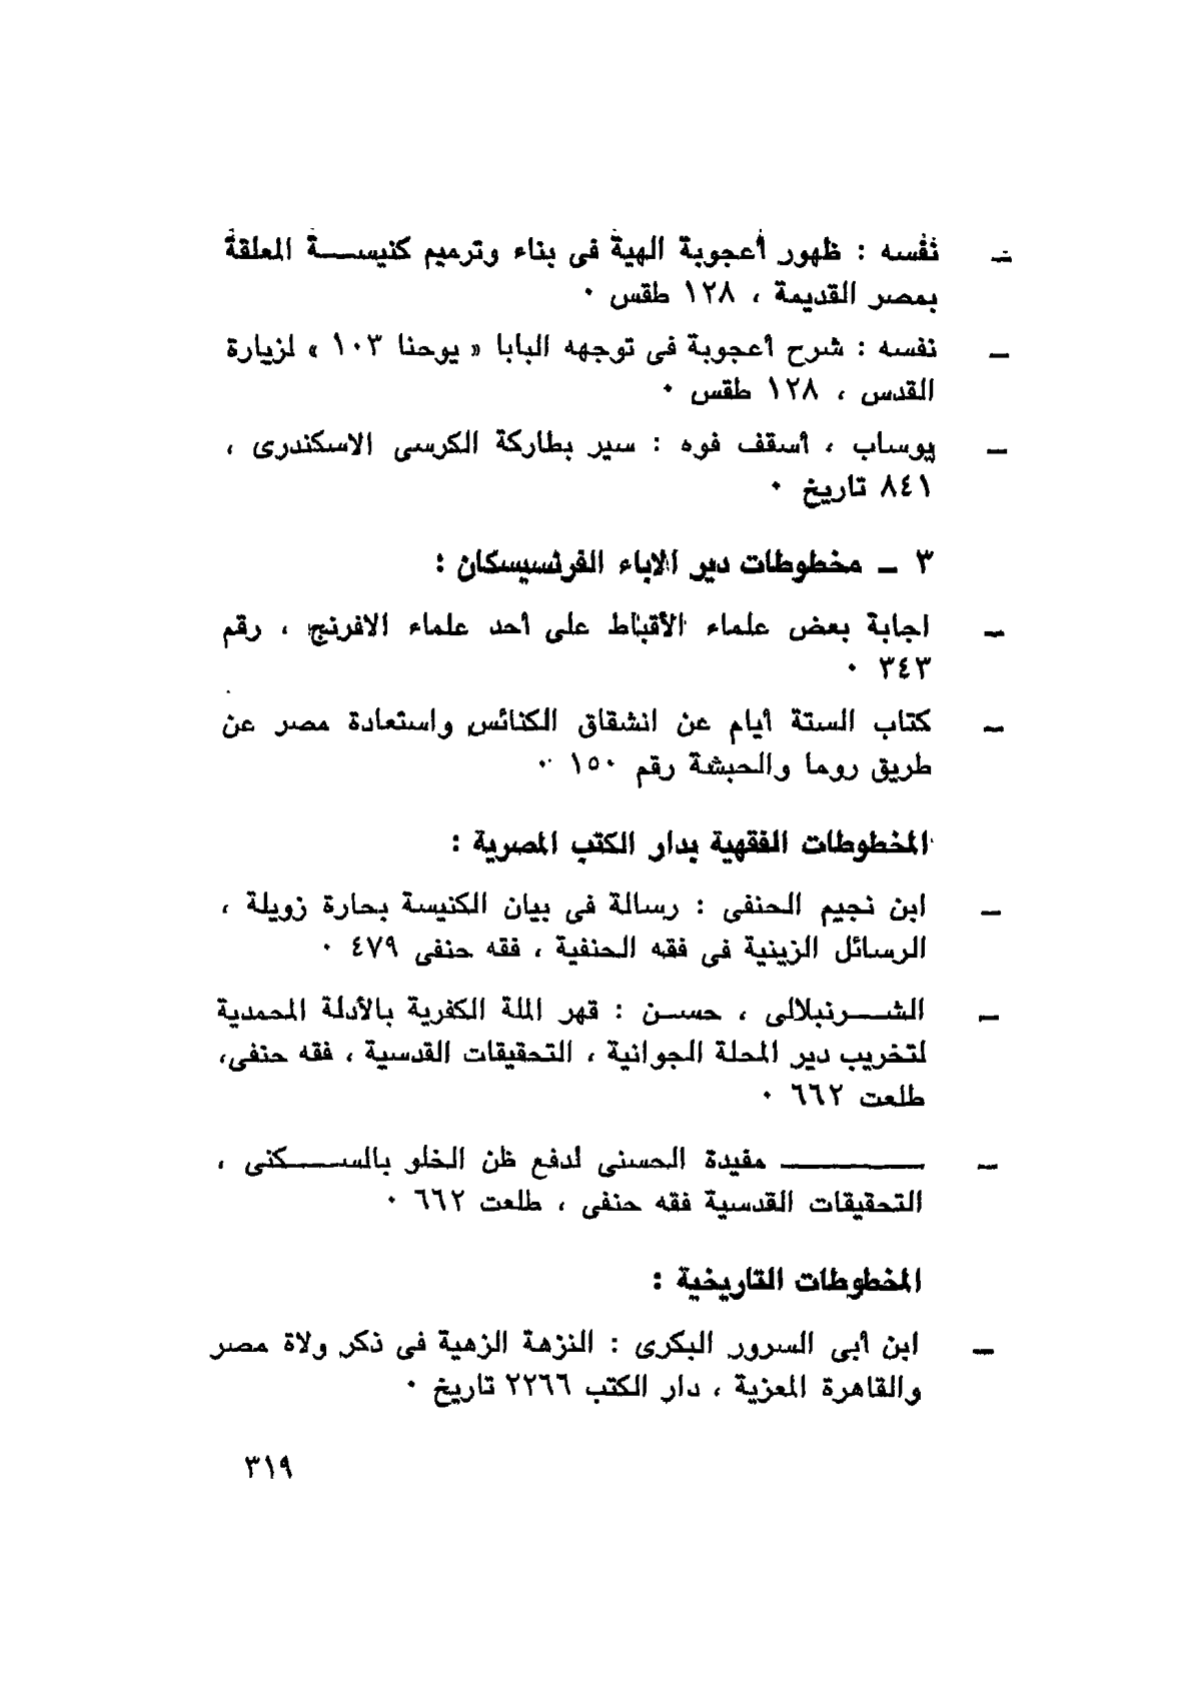 ـ نفسه : ظهور أعجوبة الهية فى بناء وترميم كنيســـة المعلقة
بمصر القديمة ، ١٢٨ طقس ٠
ـ نفسه : شرح أعجوبة فى توجهه البابا « يوحنا ١٠٣ » لزيارة
القدس ، ١٢٨ طقس ٠
ـ يوساب ، أسقف فوه : سير بطاركة الكرسى الاسكندرى ،
٨٤١ تاريخ ٠
٣ ـ مخطوطات دير الاباء الفرنسيسكان :
ـ اجابة بعض علماء الأقباط على أحد علماء الافرنج ، رقم
٣٤٣ ٠
ـ كتاب الستة أيام عن انشقاق الكنائس واستعادة مصر عن
طريق روما والحبشة رقم ١٥٠ ٠
المخطوطات الفقهية بدار الكتب المصرية :
ـ ابن نجيم الحنفى : رسالة فى بيان الكنيسة بحارة زويلة ،
الرسائل الزينية فى فقه الحنفية ، فقه حنفى ٤٧٩ ٠
ـ الشـــرنبلالى ، حســن : قهر الملة الكفرية بالأدلة المحمدية
لتخريب دير المحلة الجوانية ، التحقيقات القدسية ، فقه حنفى،
طلعت ٦٦٢ ٠
ـ ــــــــــــ مفيدة الحسنى لدفع ظن الخلو بالســـكنى ،
التحقيقات القدسية فقه حنفى ، طلعت ٦٦٢ ٠
المخطوطات التاريخية :
ـ ابن أبى السرور البكرى : النزهة الزهية فى ذكر ولاة مصر
والقاهرة المعزية ، دار الكتب ٢٢٦٦ تاريخ ٠
٣١٩